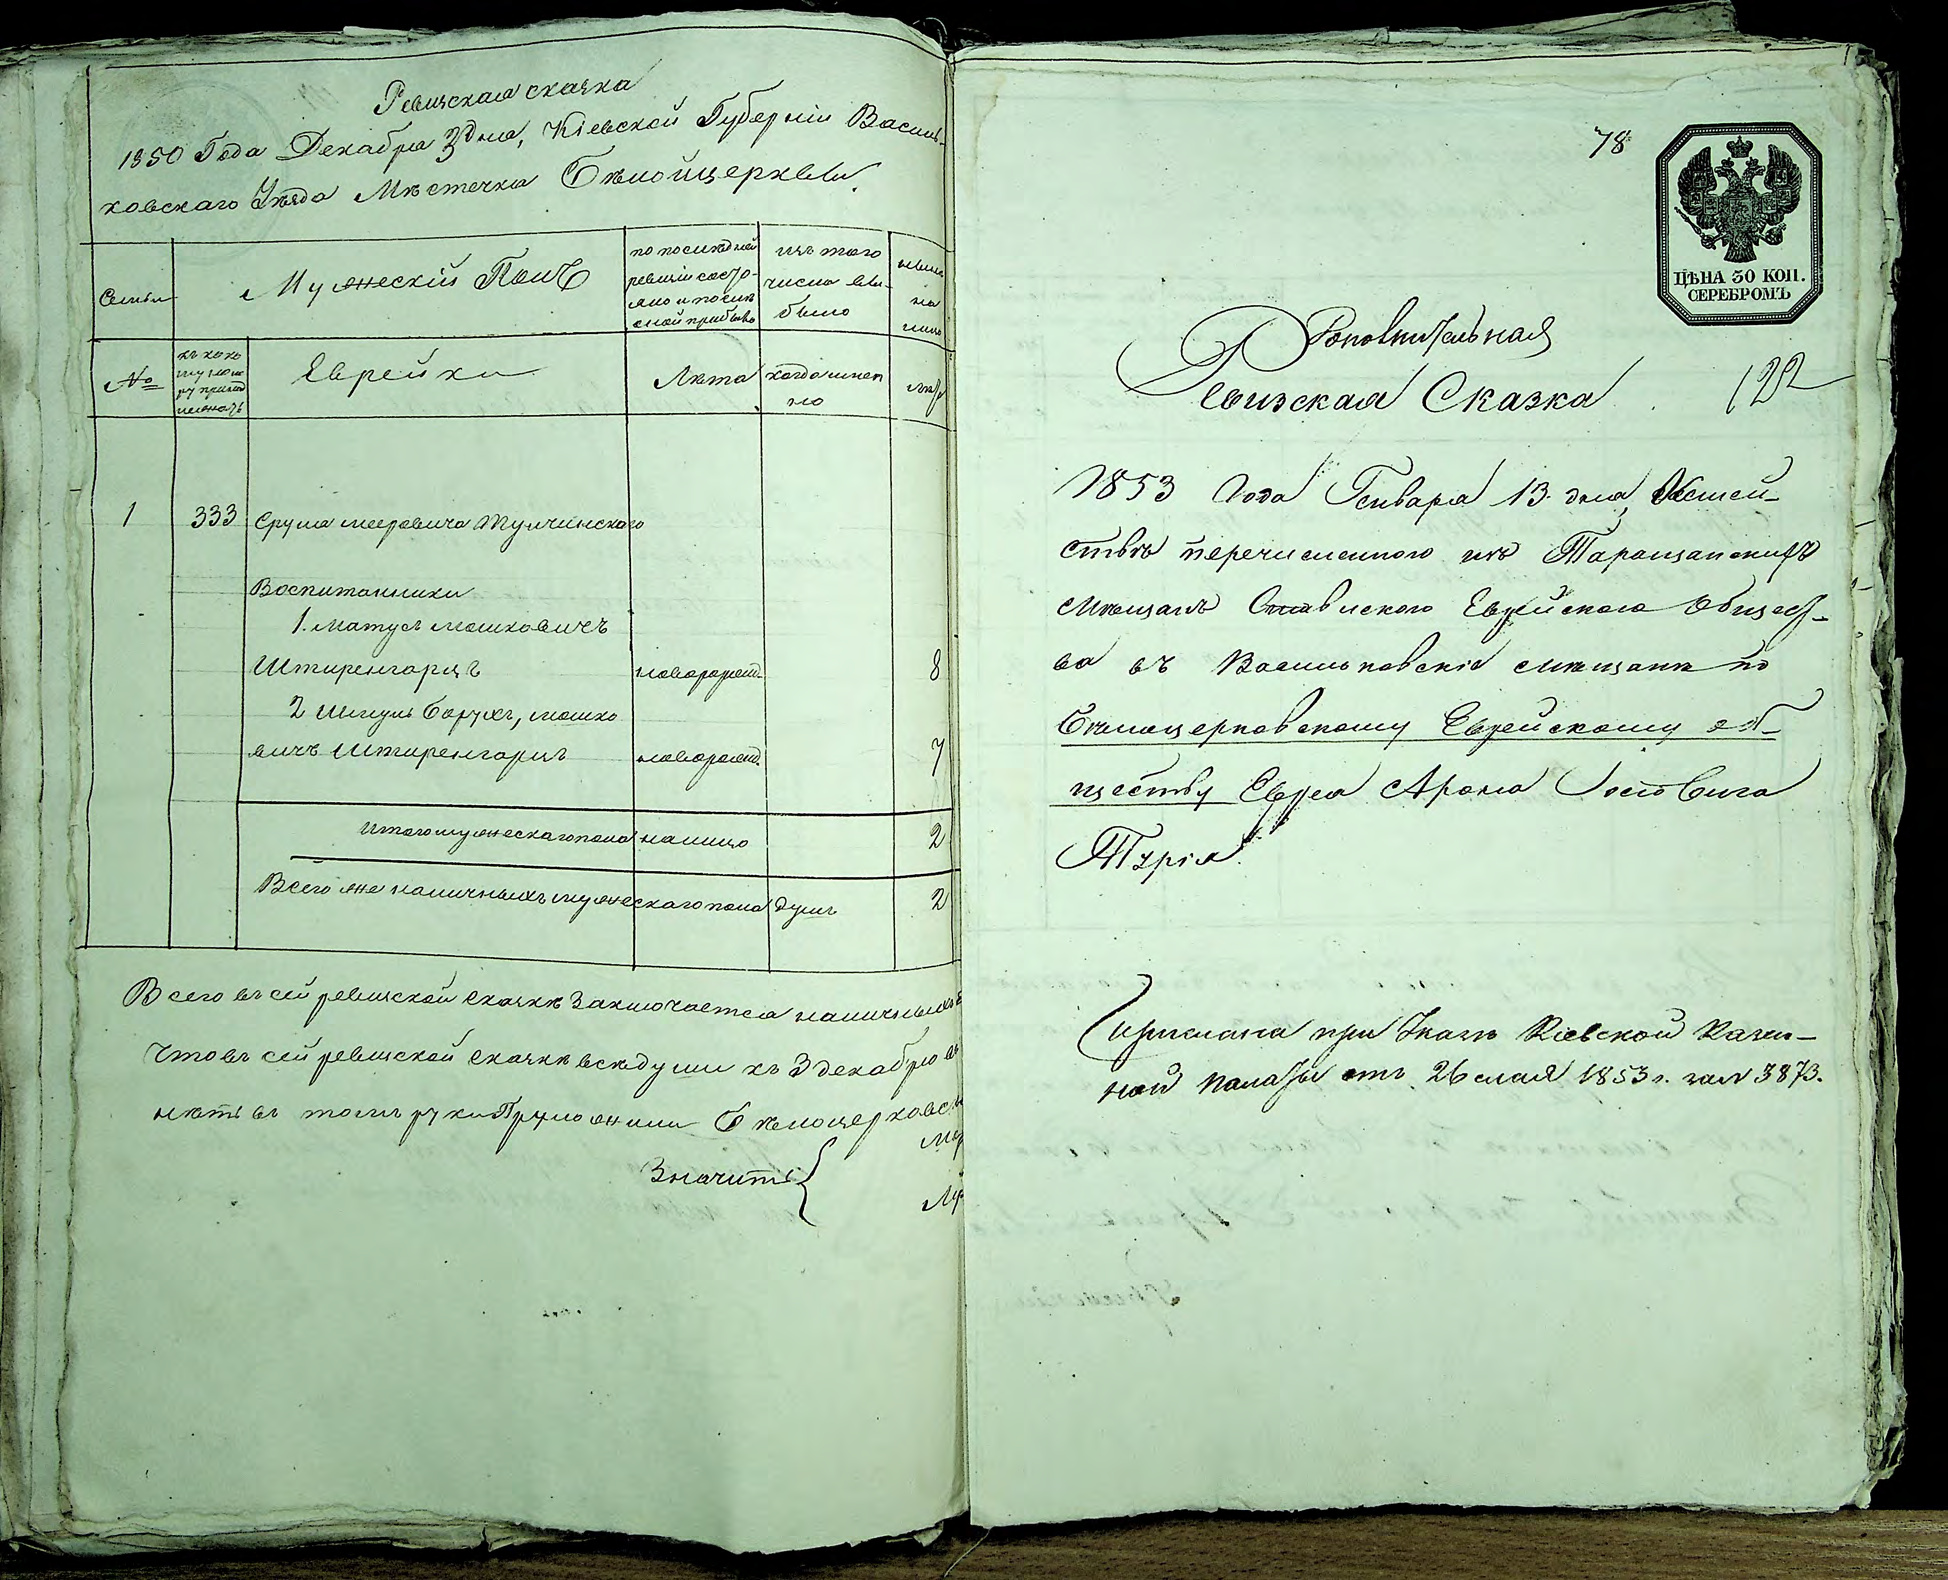 Ревизская сказка
1850 Года Декабря 3 дня, Кіевской Губерніи Василь-
ковскаго Уѣзда Мѣстечка Бѣлойцеркви.
Семьи
Мужескій Полъ
по последней
ревизіи состо-
яло и после
оной прибыло
изъ того
числа вы-
было
ныне
на
лицо
№
Евреики
Лѣта
когда имен
но
лѣт
1 333 Срула мееровича Тульчинскаго
Воспитанники
1. Матусъ мошковичъ
Штиренгарцъ новорожд. 8
2 Шмуль Борухъ, мошко
вичъ Штиренгарцъ новорожд. 7
Итого мужескаго пола налицо 2
Всего же наличныхъ мужескаго пола душъ 2
Всего въ сей ревизской сказкѣ заключается наличныхъ
Что въ сей ревизской сказкѣ все души къ 3 декабрю
нѣтъ въ томъ руки приложили Бѣлоцерковс
Значитъ
78
ЦѢНА 30 КОП.
СЕРЕБРОМЪ
Дополнительная
Ревизская Сказка
122
1853 Года Генваря 13 дня, О семей-
ствѣ перечисленного изъ Таращанскихъ
мѣщанъ Ставиского Еврейского общест-
ва въ Васильковскіе мѣщане по
Бѣлоцерковскому Еврейскому об-
ществу Еврея Арона Іосіовича
Турія.
Прислана при Указѣ Кіевской Казен-
ной палаты отъ 26 мая 1853 г. за № 3873.